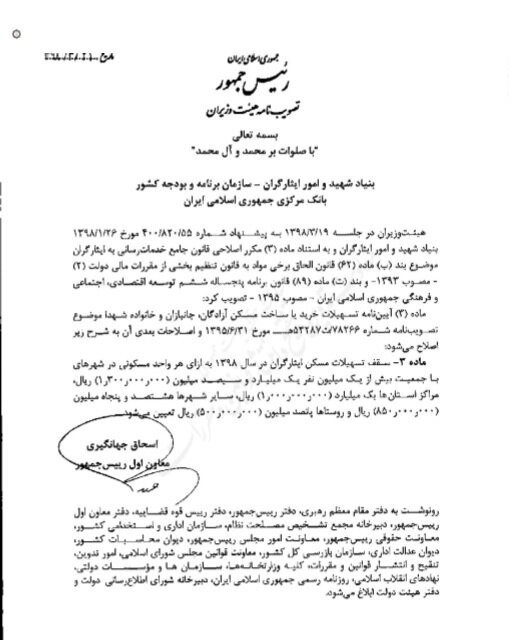 جمهوری اسلامی ایران
رئیس جمهور
تصویب‌نامه هیئت وزیران
بسمه تعالی
"با صلوات بر محمد و آل محمد"
بنیاد شهید و امور ایثارگران – سازمان برنامه و بودجه کشور
بانک مرکزی جمهوری اسلامی ایران
هیئت‌وزیران در جلسه ۱۳۹۸/۳/۱۹ به پیشنهاد شماره ۴۰۰/۸۲۰/۵۵ مورخ ۱۳۹۸/۱/۲۶
بنیاد شهید و امور ایثارگران و به استناد ماده (۳) مکرر اصلاحی قانون جامع خدمات‌رسانی به ایثارگران
موضوع بند (ب) ماده (۶۲) قانون الحاق برخی مواد به قانون تنظیم بخشی از مقررات مالی دولت (۲)
- مصوب ۱۳۹۳- و بند (ث) ماده (۸۹) قانون برنامه پنجساله ششم توسعه اقتصادی، اجتماعی
و فرهنگی جمهوری اسلامی ایران - مصوب ۱۳۹۵ - تصویب کرد:
ماده (۳) آیین‌نامه تسهیلات خرید یا ساخت مسکن آزادگان، جانبازان و خانواده شهدا موضوع
تصویب‌نامه شماره ۷۸۲۶۶/ت۵۳۲۸۷هـ مورخ ۱۳۹۵/۶/۳۱ و اصلاحات بعدی آن به شرح زیر
اصلاح می‌شود:
ماده ۳- سقف تسهیلات مسکن ایثارگران در سال ۱۳۹۸ به ازای هر واحد مسکونی در شهرهای
با جمعیت بیش از یک میلیون نفر یک میلیارد و سیصد میلیون (۱٫۳۰۰٫۰۰۰٫۰۰۰) ریال،
مراکز استان‌ها یک میلیارد (۱٫۰۰۰٫۰۰۰٫۰۰۰) ریال، سایر شهرها هشتصد و پنجاه میلیون
(۸۵۰٫۰۰۰٫۰۰۰) ریال و روستاها پانصد میلیون (۵۰۰٫۰۰۰٫۰۰۰) ریال تعیین می‌شود.
اسحاق جهانگیری
معاون اول رییس‌جمهور
رونوشت به دفتر مقام معظم رهبری، دفتر رییس‌جمهور، دفتر رییس قوه قضاییه، دفتر معاون اول
رییس‌جمهور، دبیرخانه مجمع تشخیص مصلحت نظام، سازمان اداری و استخدامی کشور،
معاونت حقوقی رییس‌جمهور، معاونت امور مجلس رییس‌جمهور، دیوان محاسبات کشور،
دیوان عدالت اداری، سازمان بازرسی کل کشور، معاونت قوانین مجلس شورای اسلامی، امور تدوین،
تنقیح و انتشار قوانین و مقررات، کلیه وزارتخانه‌ها، سازمان ها و مؤسسات دولتی،
نهادهای انقلاب اسلامی، روزنامه رسمی جمهوری اسلامی ایران، دبیرخانه شورای اطلاع‌رسانی دولت و
دفتر هیئت دولت ابلاغ می‌شود.